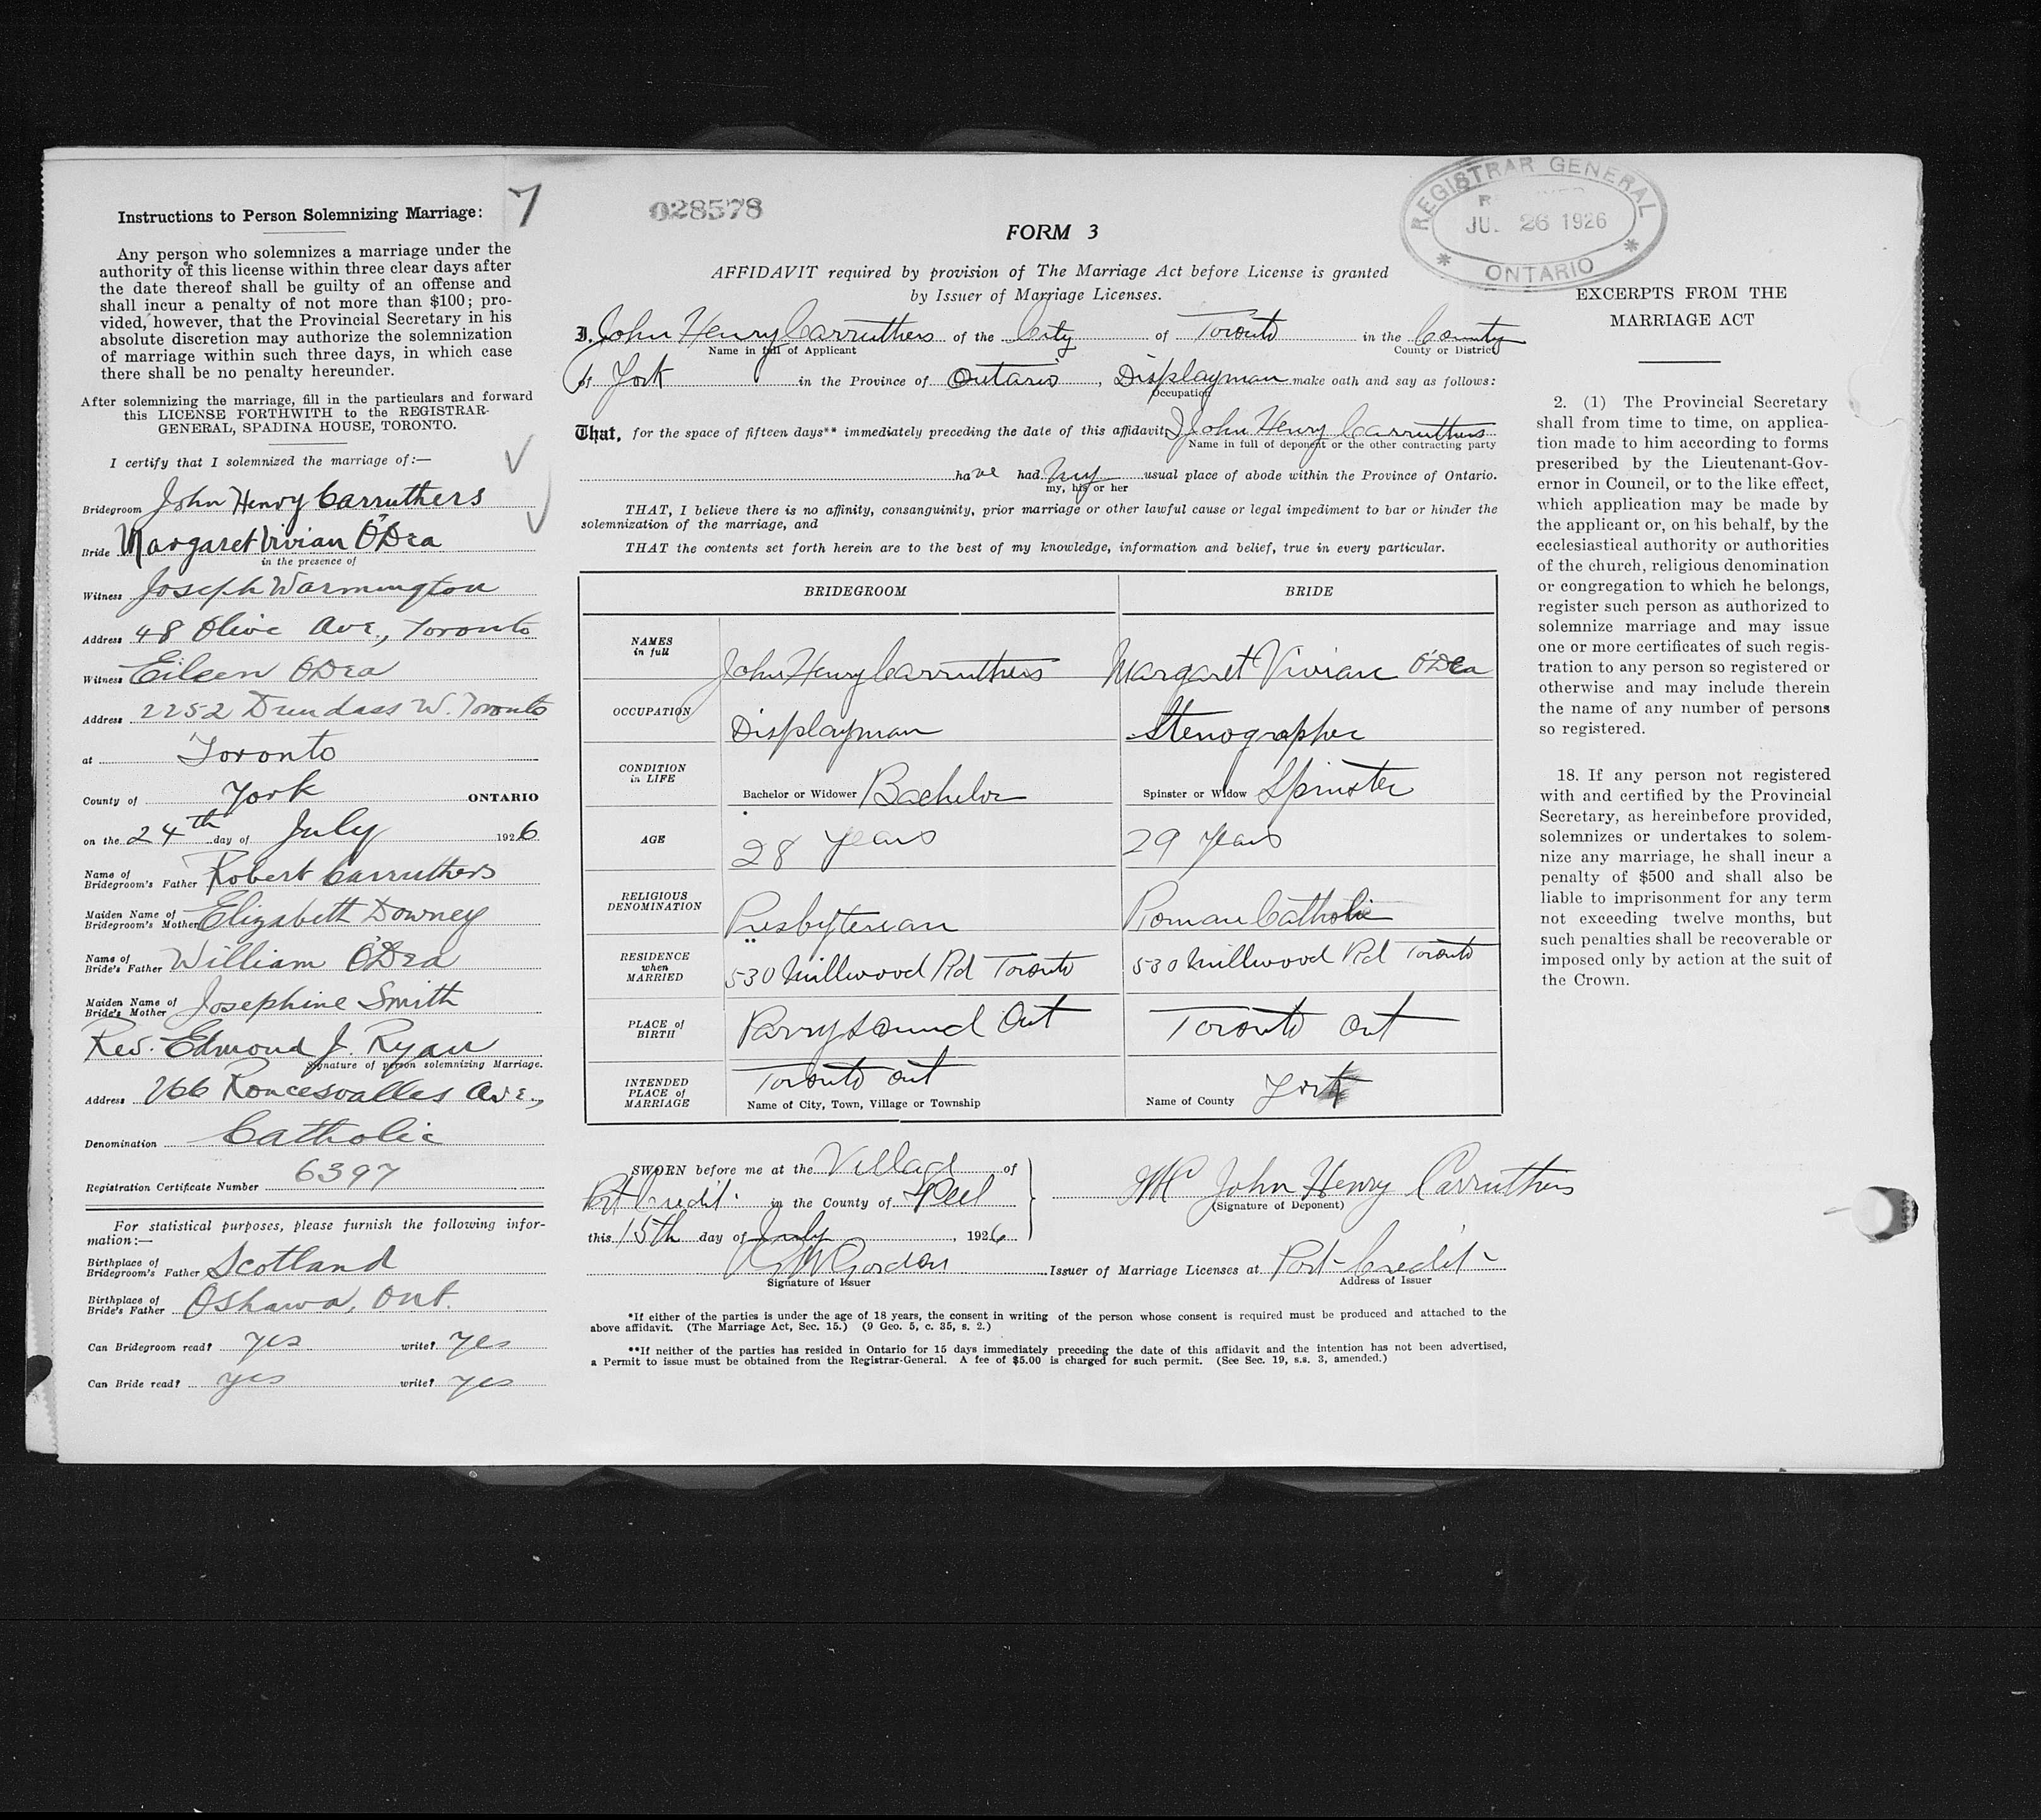 Instructions to Person Solemnizing Marriage:
7
Any person who solemnizes a marriage under the
authority of this license within three clear days after
the date thereof shall be guilty of an offense and
shall incur a penalty of not more than $100; pro-
vided, however, that the Provincial Secretary in his
absolute discretion may authorize the solemnization
of marriage within such three days, in which case
there shall be no penalty hereunder.
After solemnizing the marriage, fill in the particulars and forward
this LICENSE FORTHWITH to the REGISTRAR-
GENERAL, SPADINA HOUSE, TORONTO.
I certify that I solemnized the marriage of:—
Bridegroom John Henry Carruthers
Bride Margaret Vivian O'Dea
in the presence of
Witness Joseph Warmington
Address 48 Olive Ave., Toronto
Witness Eileen O'Dea
Address 2252 Dundass W. Toronto
at Toronto
County of York ONTARIO
on the 24th day of July 1926
Name of Bridegroom's Father Robert Carruthers
Maiden Name of Bridegroom's Mother Elizabeth Downey
Name of Bride's Father William O'Dea
Maiden Name of Bride's Mother Josephine Smith
Rev. Edmond J. Ryan
Signature of person solemnizing Marriage.
Address 266 Roncesvalles Ave.,
Denomination Catholic
Registration Certificate Number 6397
For statistical purposes, please furnish the following infor-
mation:—
Birthplace of Bridegroom's Father Scotland
Birthplace of Bride's Father Oshawa, Ont.
Can Bridegroom read? yes write? yes
Can Bride read? yes write? yes
028578
FORM 3
AFFIDAVIT required by provision of The Marriage Act before License is granted
by Issuer of Marriage Licenses.
I, John Henry Carruthers of the City of Toronto in the County
Name in full of Applicant County or District
of York in the Province of Ontario, Displayman make oath and say as follows:
Occupation
That, for the space of fifteen days** immediately preceding the date of this affidavit I John Henry Carruthers
Name in full of deponent or the other contracting party
have had my usual place of abode within the Province of Ontario.
my, his or her
THAT, I believe there is no affinity, consanguinity, prior marriage or other lawful cause or legal impediment to bar or hinder the
solemnization of the marriage, and
THAT the contents set forth herein are to the best of my knowledge, information and belief, true in every particular.
BRIDEGROOM BRIDE
NAMES in full John Henry Carruthers Margaret Vivian O'Dea
OCCUPATION Displayman Stenographer
CONDITION in LIFE Bachelor or Widower Bachelor Spinster or Widow Spinster
AGE 28 years 29 years
RELIGIOUS DENOMINATION Presbyterian Roman Catholic
RESIDENCE when MARRIED 530 Millwood Rd Toronto 530 Millwood Rd Toronto
PLACE of BIRTH Parry Sound Ont Toronto Ont
INTENDED PLACE of MARRIAGE Toronto Ont York
Name of City, Town, Village or Township Name of County
SWORN before me at the Village of
Port Credit in the County of Peel
this 15th day of July, 1926
John Henry Carruthers
(Signature of Deponent)
Gordon Issuer of Marriage Licenses at Port Credit
Signature of Issuer Address of Issuer
*If either of the parties is under the age of 18 years, the consent in writing of the person whose consent is required must be produced and attached to the
above affidavit. (The Marriage Act, Sec. 15.) (9 Geo. 5, c. 35, s. 2.)
**If neither of the parties has resided in Ontario for 15 days immediately preceding the date of this affidavit and the intention has not been advertised,
a Permit to issue must be obtained from the Registrar-General. A fee of $5.00 is charged for such permit. (See Sec. 19, s.s. 3, amended.)
REGISTRAR GENERAL
26 1926
* ONTARIO *
EXCERPTS FROM THE
MARRIAGE ACT
2. (1) The Provincial Secretary
shall from time to time, on applica-
tion made to him according to forms
prescribed by the Lieutenant-Gov-
ernor in Council, or to the like effect,
which application may be made by
the applicant or, on his behalf, by the
ecclesiastical authority or authorities
of the church, religious denomination
or congregation to which he belongs,
register such person as authorized to
solemnize marriage and may issue
one or more certificates of such regis-
tration to any person so registered or
otherwise and may include therein
the name of any number of persons
so registered.
18. If any person not registered
with and certified by the Provincial
Secretary, as hereinbefore provided,
solemnizes or undertakes to solem-
nize any marriage, he shall incur a
penalty of $500 and shall also be
liable to imprisonment for any term
not exceeding twelve months, but
such penalties shall be recoverable or
imposed only by action at the suit of
the Crown.